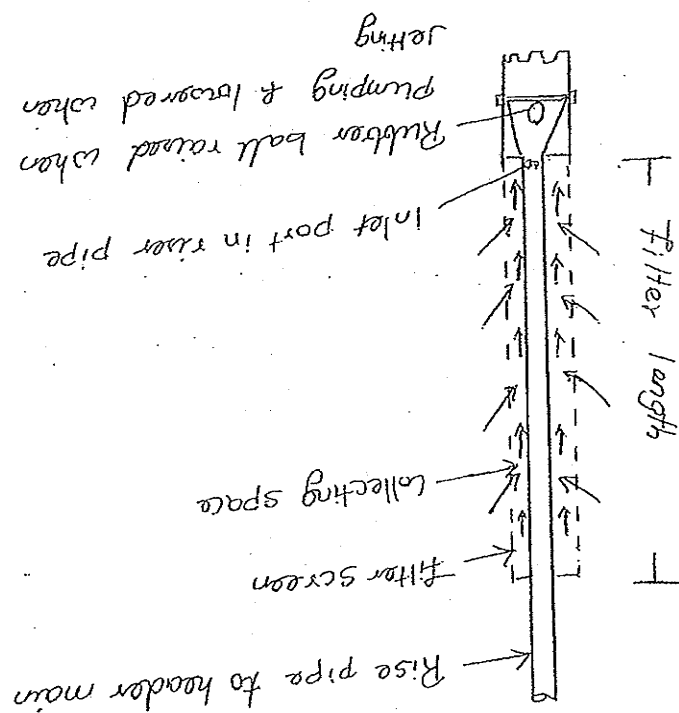 Rise pipe to header main
filter screen
Collecting space
Filter length
inlet port in riser pipe
Rubber ball raised when
pumping & lowered when
Jetting